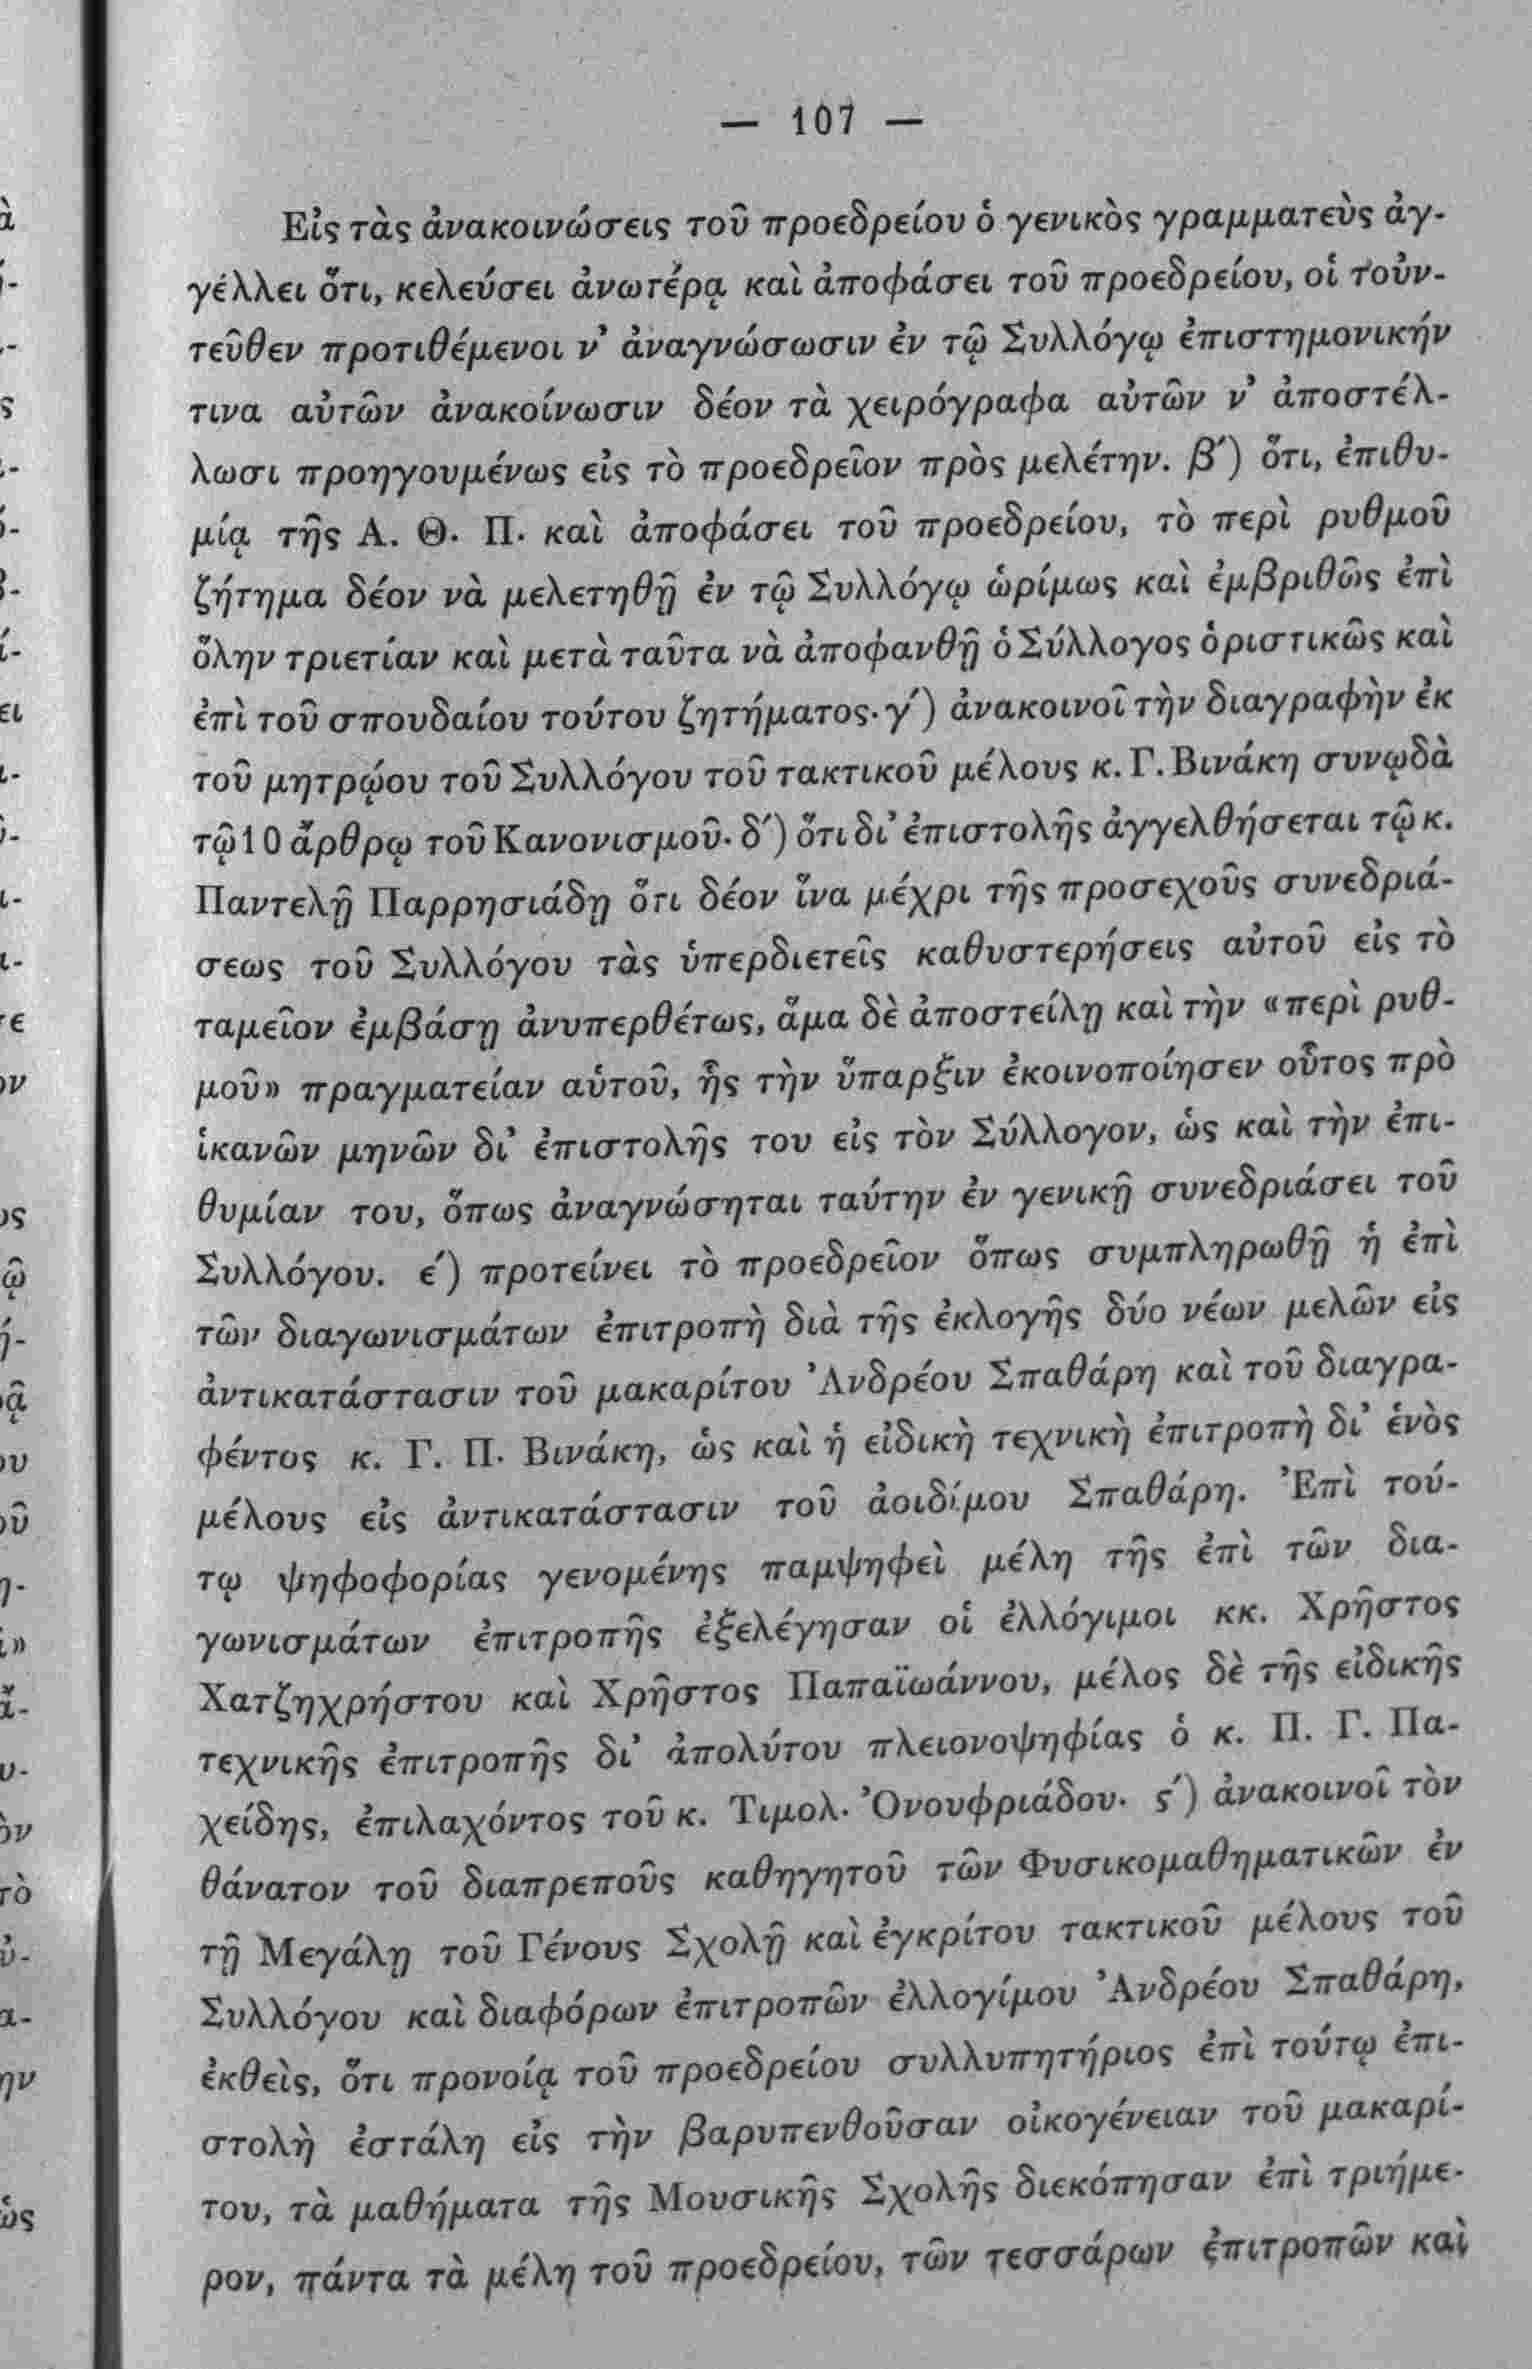 — 107 —
Εἰς τὰς ἀνακοινώσεις τοῦ προεδρείου ὁ γενικὸς γραμματεὺς ἀγ-
γέλλει ὅτι, κελεύσει ἀνωτέρᾳ καὶ ἀποφάσει τοῦ προεδρείου, οἱ τοὐν-
τεῦθεν προτιθέμενοι ν’ ἀναγνώσωσιν ἐν τῷ Συλλόγῳ ἐπιστημονικήν
τινα αὐτῶν ἀνακοίνωσιν δέον τὰ χειρόγραφα αὐτῶν ν’ ἀποστέλ-
λωσι προηγουμένως εἰς τὸ προεδρεῖον πρὸς μελέτην. β΄) ὅτι, ἐπιθυ-
μίᾳ τῆς Α. Θ. Π. καὶ ἀποφάσει τοῦ προεδρείου, τὸ περὶ ρυθμοῦ
ζήτημα δέον νὰ μελετηθῇ ἐν τῷ Συλλόγῳ ὡρίμως καὶ ἐμβριθῶς ἐπὶ
ὅλην τριετίαν καὶ μετὰ ταῦτα νὰ ἀποφανθῇ ὁ Σύλλογος ὁριστικῶς καὶ
ἐπὶ τοῦ σπουδαίου τούτου ζητήματος· γ΄) ἀνακοινοῖ τὴν διαγραφὴν ἐκ
τοῦ μητρῴου τοῦ Συλλόγου τοῦ τακτικοῦ μέλους κ. Γ. Βινάκη συνῳδὰ
τῷ 10 ἄρθρῳ τοῦ Κανονισμοῦ· δ΄) ὅτι δι’ ἐπιστολῆς ἀγγελθήσεται τῷ κ.
Παντελῇ Παρρησιάδῃ ὅτι δέον ἵνα μέχρι τῆς προσεχοῦς συνεδριά-
σεως τοῦ Συλλόγου τὰς ὑπερδιετεῖς καθυστερήσεις αὐτοῦ εἰς τὸ
ταμεῖον ἐμβάσῃ ἀνυπερθέτως, ἅμα δὲ ἀποστείλῃ καὶ τὴν «περὶ ρυθ-
μοῦ» πραγματείαν αὑτοῦ, ἧς τὴν ὕπαρξιν ἐκοινοποίησεν οὗτος πρὸ
ἱκανῶν μηνῶν δι’ ἐπιστολῆς του εἰς τὸν Σύλλογον, ὡς καὶ τὴν ἐπι-
θυμίαν του, ὅπως ἀναγνώσηται ταύτην ἐν γενικῇ συνεδριάσει τοῦ
Συλλόγου. ε΄) προτείνει τὸ προεδρεῖον ὅπως συμπληρωθῇ ἡ ἐπὶ
τῶν διαγωνισμάτων ἐπιτροπὴ διὰ τῆς ἐκλογῆς δύο νέων μελῶν εἰς
ἀντικατάστασιν τοῦ μακαρίτου Ἀνδρέου Σπαθάρη καὶ τοῦ διαγρα-
φέντος κ. Γ. Π. Βινάκη, ὡς καὶ ἡ εἰδικὴ τεχνικὴ ἐπιτροπὴ δι’ ἑνὸς
μέλους εἰς ἀντικατάστασιν τοῦ ἀοιδίμου Σπαθάρη. Ἐπὶ τού-
τῳ ψηφοφορίας γενομένης παμψηφεὶ μέλη τῆς ἐπὶ τῶν δια-
γωνισμάτων ἐπιτροπῆς ἐξελέγησαν οἱ ἐλλόγιμοι κκ. Χρῆστος
Χατζηχρήστου καὶ Χρῆστος Παπαϊωάννου, μέλος δὲ τῆς εἰδικῆς
τεχνικῆς ἐπιτροπῆς δι’ ἀπολύτου πλειονοψηφίας ὁ κ. Π. Γ. Πα-
χείδης, ἐπιλαχόντος τοῦ κ. Τιμολ. Ὀνουφριάδου. ς΄) ἀνακοινοῖ τὸν
θάνατον τοῦ διαπρεποῦς καθηγητοῦ τῶν Φυσικομαθηματικῶν ἐν
τῇ Μεγάλῃ τοῦ Γένους Σχολῇ καὶ ἐγκρίτου τακτικοῦ μέλους τοῦ
Συλλόγου καὶ διαφόρων ἐπιτροπῶν ἐλλογίμου Ἀνδρέου Σπαθάρη,
ἐκθεὶς, ὅτι προνοίᾳ τοῦ προεδρείου συλλυπητήριος ἐπὶ τούτῳ ἐπι-
στολὴ ἐστάλη εἰς τὴν βαρυπενθοῦσαν οἰκογένειαν τοῦ μακαρί-
του, τὰ μαθήματα τῆς Μουσικῆς Σχολῆς διεκόπησαν ἐπὶ τριήμε-
ρον, πάντα τὰ μέλη τοῦ προεδρείου, τῶν τεσσάρων ἐπιτροπῶν καὶ